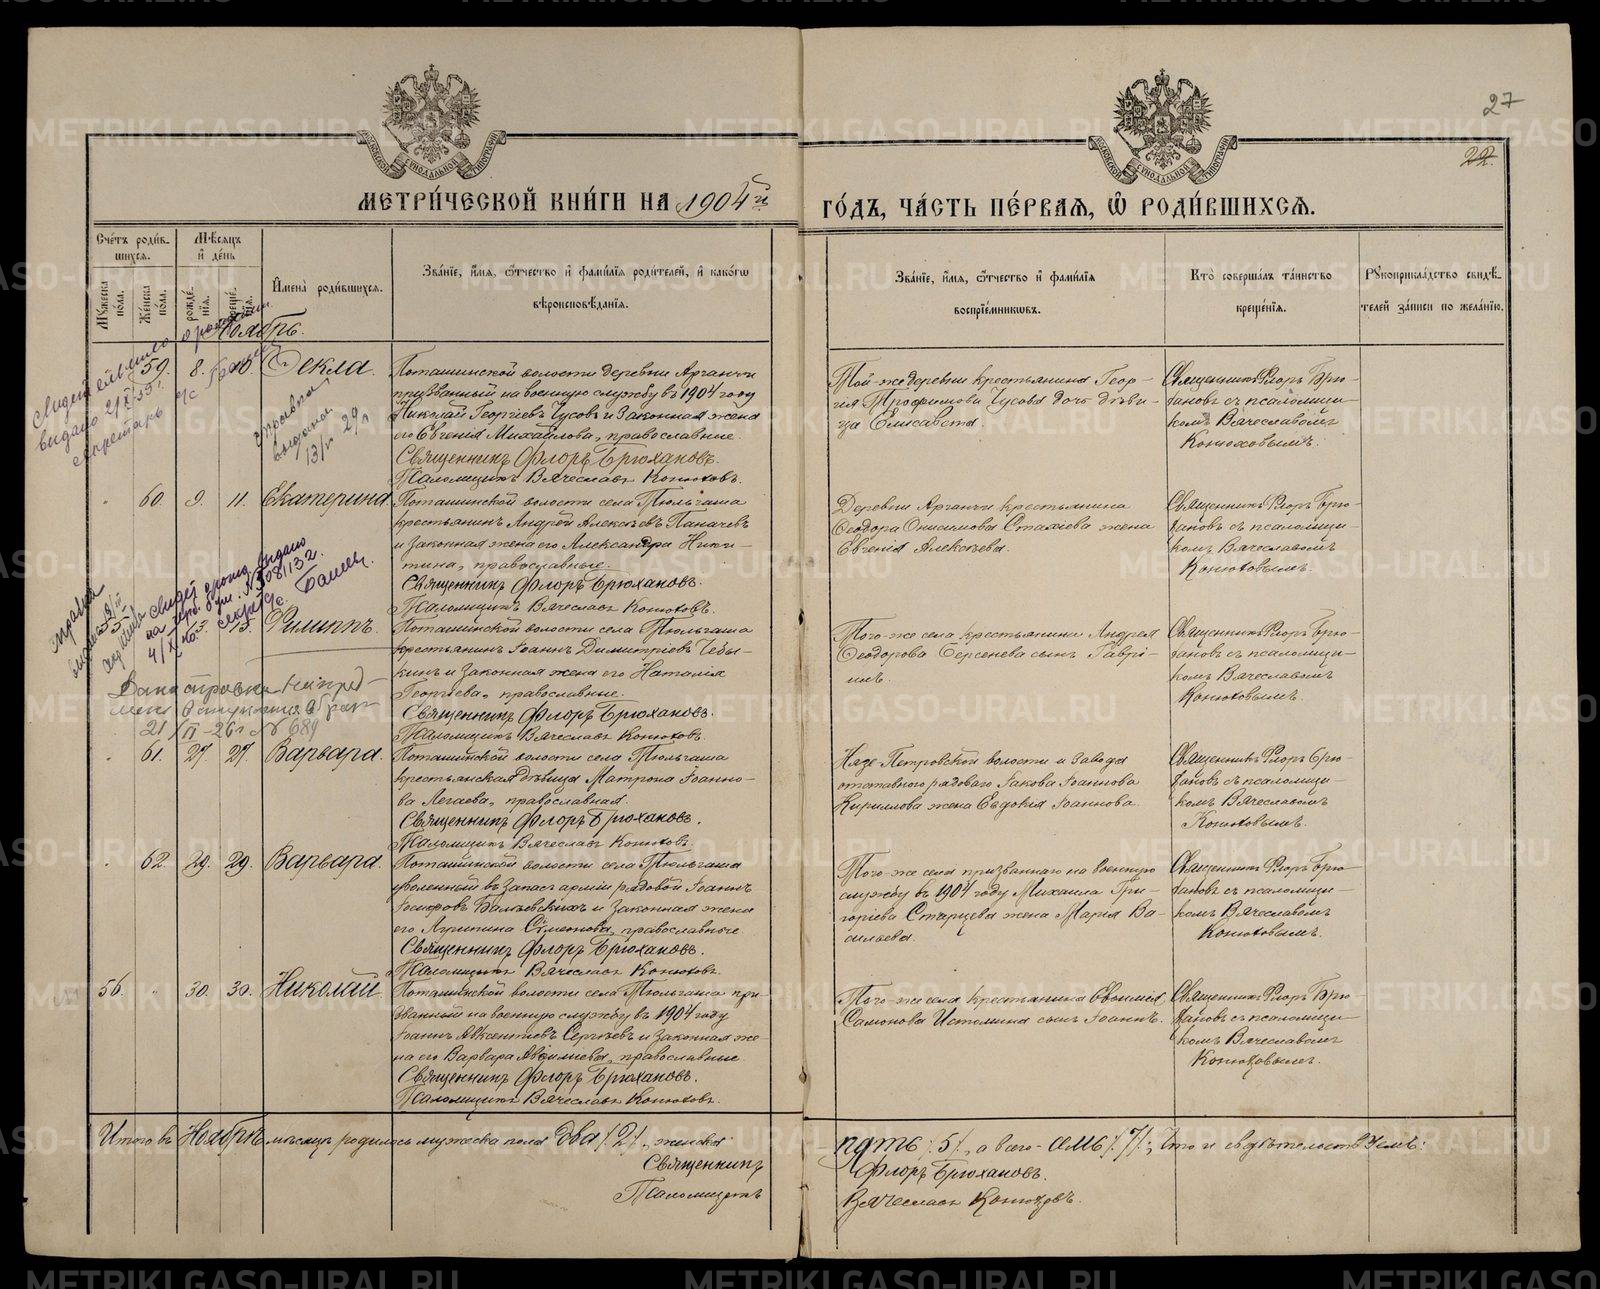 27
22.
МЕТРИ́ЧЕСКОЙ КНИ́ГИ НА 1904й
ГО́ДЪ, ЧА́СТЬ ПЕ́РВАѦ, Ѡ РОДИ́ВШИХСѦ.
Сче́тъ роди́в-
шихся.
Мѣ́сяцъ
и҆ де́нь
Мꙋ́жеска
по́ла.
Же́нска
по́ла.
рожде́-
нїя.
креще́-
нїя.
И҆мена̀ роди́вшихся.
Зва́нїе, и҆́мя, ѻ҆́тчество и҆ фами́лїя роди́телей, и҆ како́гѡ
вѣроисповѣ́данїя.
Зва́нїе, и҆́мя, ѻ҆́тчество и҆ фами́лїя
воспрїе́мниковъ.
Кто̀ соверша́лъ та́инство
креще́нїя.
Рꙋкоприкла́дство свидѣ́-
телей за́писи по жела́нїю.
Ноябрь.
59. 8. 10. Ѳекла.
Поташинской волости деревни Арганчи
призванный на военную службу въ 1904 году
Николай Георгіевъ Чусовъ и законная жена
его Евгенія Михайлова, православные.
Священникъ Флоръ Брюхановъ.
Псаломщикъ Вячеславъ Конюховъ.
Той-же деревни крестьянина Геор-
гія Трофимова Чусова дочь дѣви-
ца Елисавета.
Священникъ Флоръ Брю-
хановъ съ псаломщи-
комъ Вячеславомъ
Конюховымъ.
справка
выдана
13/ 29
60. 9. 11. Екатерина.
Поташинской волости села Тюльгаша
крестьянинъ Андрей Алексѣевъ Паначевъ
и законная жена его Александра Ники-
тина, православные.
Священникъ Флоръ Брюхановъ.
Псаломщикъ Вячеславъ Конюховъ.
Деревни Арганчи крестьянина
Ѳеодора Онисимова Стахѣева жена
Евгенія Алексѣева.
Священникъ Флоръ Брю-
хановъ съ псаломщи-
комъ Вячеславомъ
Конюховымъ.
13. Филиппъ.
Поташинской волости села Тюльгаша
крестьянинъ Іоаннъ Димитріевъ Чебы-
кинъ и законная жена его Наталія
Георгіева, православные.
Священникъ Флоръ Брюхановъ.
Псаломщикъ Вячеславъ Конюховъ.
Того-же села крестьянина Андрея
Ѳеодорова Серсенева сынъ Гаврі-
илъ.
Священникъ Флоръ Брю-
хановъ съ псаломщи-
комъ Вячеславомъ
Конюховымъ.
Дана справка на пред-
мет вступления в брак
21/II-26г № 689
61. 27. 27. Варвара.
Поташинской волости села Тюльгаша
крестьянская дѣвица Матрона Іоанно-
ва Легаева, православная.
Священникъ Флоръ Брюхановъ.
Псаломщикъ Вячеславъ Конюховъ.
Нязе Петровской волости и завода
отставного рядового Іакова Іоаннова
Кириллова жена Евдокія Іоаннова.
Священникъ Флоръ Брю-
хановъ съ псаломщи-
комъ Вячеславомъ
Конюховымъ.
62. 29. 29. Варвара.
Поташинской волости села Тюльгаша
уволенный въ запасъ арміи рядовой Іоаннъ
Іосифовъ Балѣевскихъ и законная жена
его Агрипина Сѵмеонова, православные.
Священникъ Флоръ Брюхановъ.
Псаломщикъ Вячеславъ Конюховъ.
Того-же села призваннаго на военную
службу въ 1904 году Михаила Гри-
горіева Старцева жена Марія Ва-
сильева.
Священникъ Флоръ Брю-
хановъ съ псаломщи-
комъ Вячеславомъ
Конюховымъ.
56. 30. 30. Николай.
Поташинской волости села Тюльгаша при-
званный на военную службу въ 1904 году
Іоаннъ Авксентіевъ Сергѣевъ и законная же-
на его Варвара православные.
Священникъ Флоръ Брюхановъ.
Псаломщикъ Вячеславъ Конюховъ.
Того-же села крестьянина
Самонова Истомина сынъ Іоаннъ.
Священникъ Флоръ Брю-
хановъ съ псаломщи-
комъ Вячеславомъ
Конюховымъ.
Итого въ Ноябрѣ мѣсяцѣ родилось мужеска пола два /2/, женска
пять /5/, а всего семь /7/; что и свидѣтельствуемъ:
Священникъ Флоръ Брюхановъ.
Псаломщикъ Вячеславъ Конюховъ.
METRIKI.GASO-URAL.RU